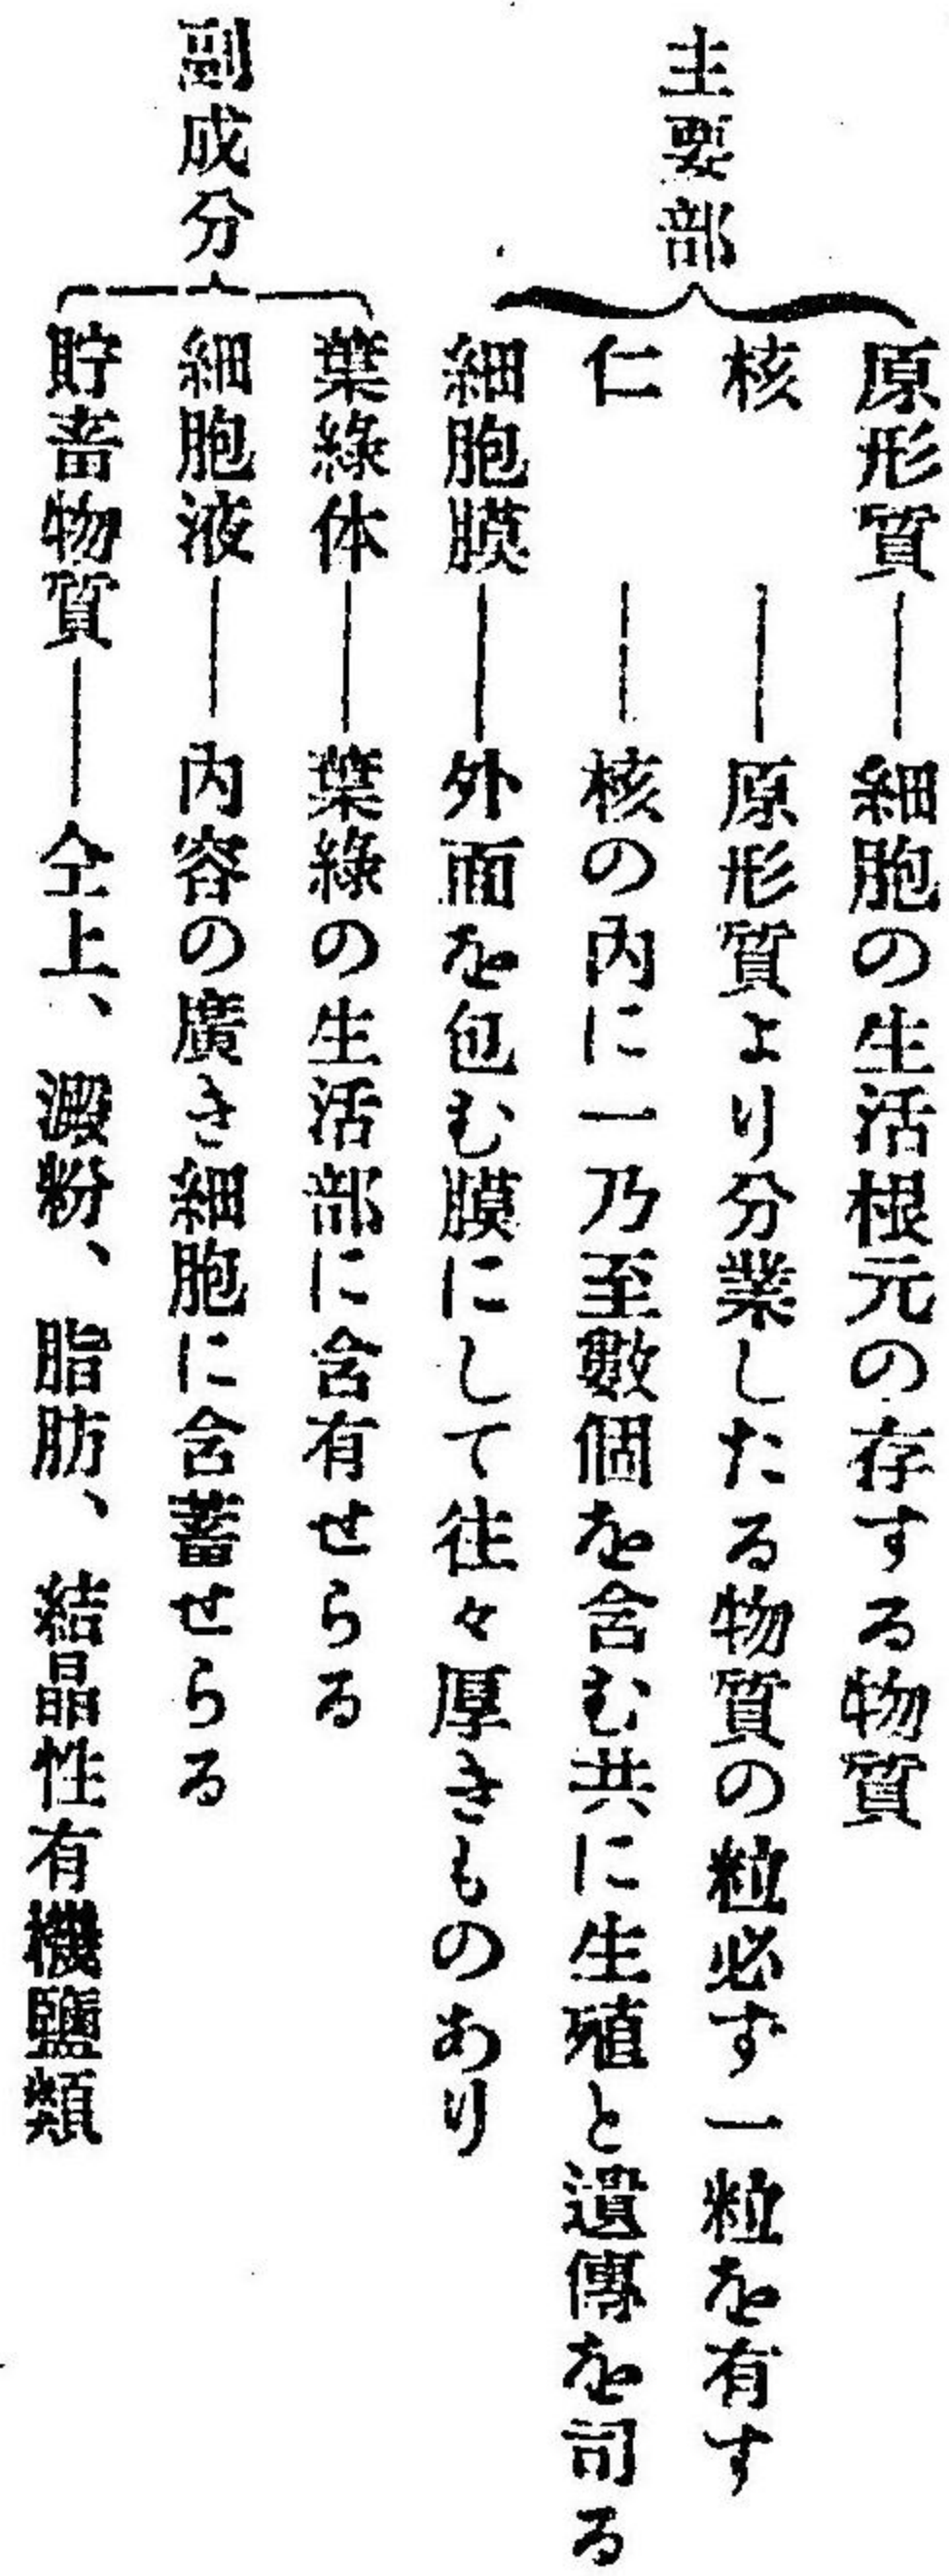 主要部
原形質――細胞の生活根元の存する物質
核――原形質より分業したる物質の粒必ず一粒を有す
仁――核の內に一乃至數個を含む共に生殖と遺傳を司る
細胞膜――外面を包む膜にして往々厚きものあり
副成分
葉綠体――葉綠の生活部に含有せらる
細胞液――內容の廣き細胞に含蓄せらる
貯畜物質――仝上、澱粉、脂肪、結晶性有機鹽類